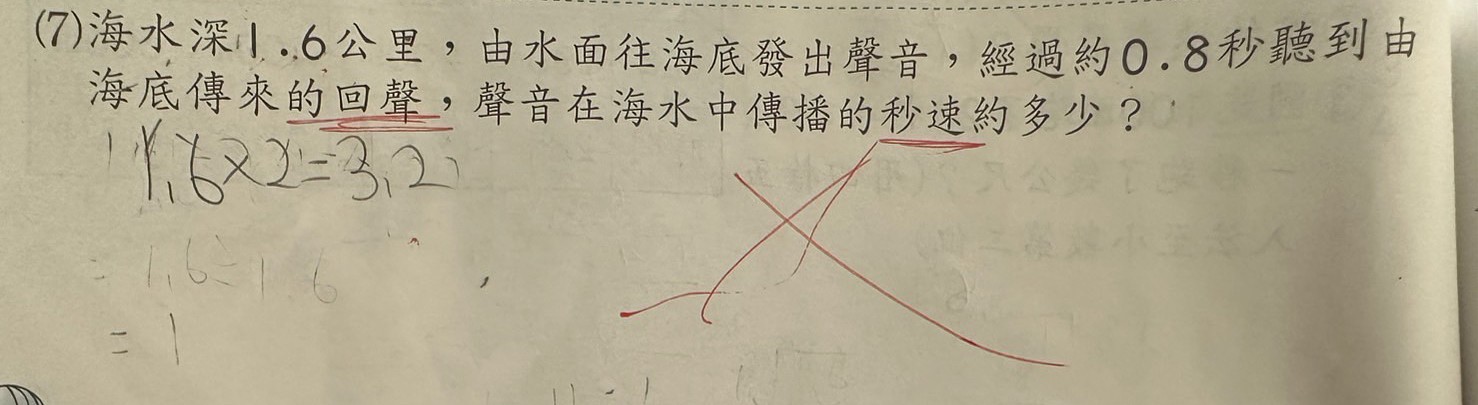 (7)海水深1.6公里，由水面往海底發出聲音，經過約0.8秒聽到由
海底傳來的回聲，聲音在海水中傳播的秒速約多少？
1.6×2=3.2
= 1.6÷1.6
= 1